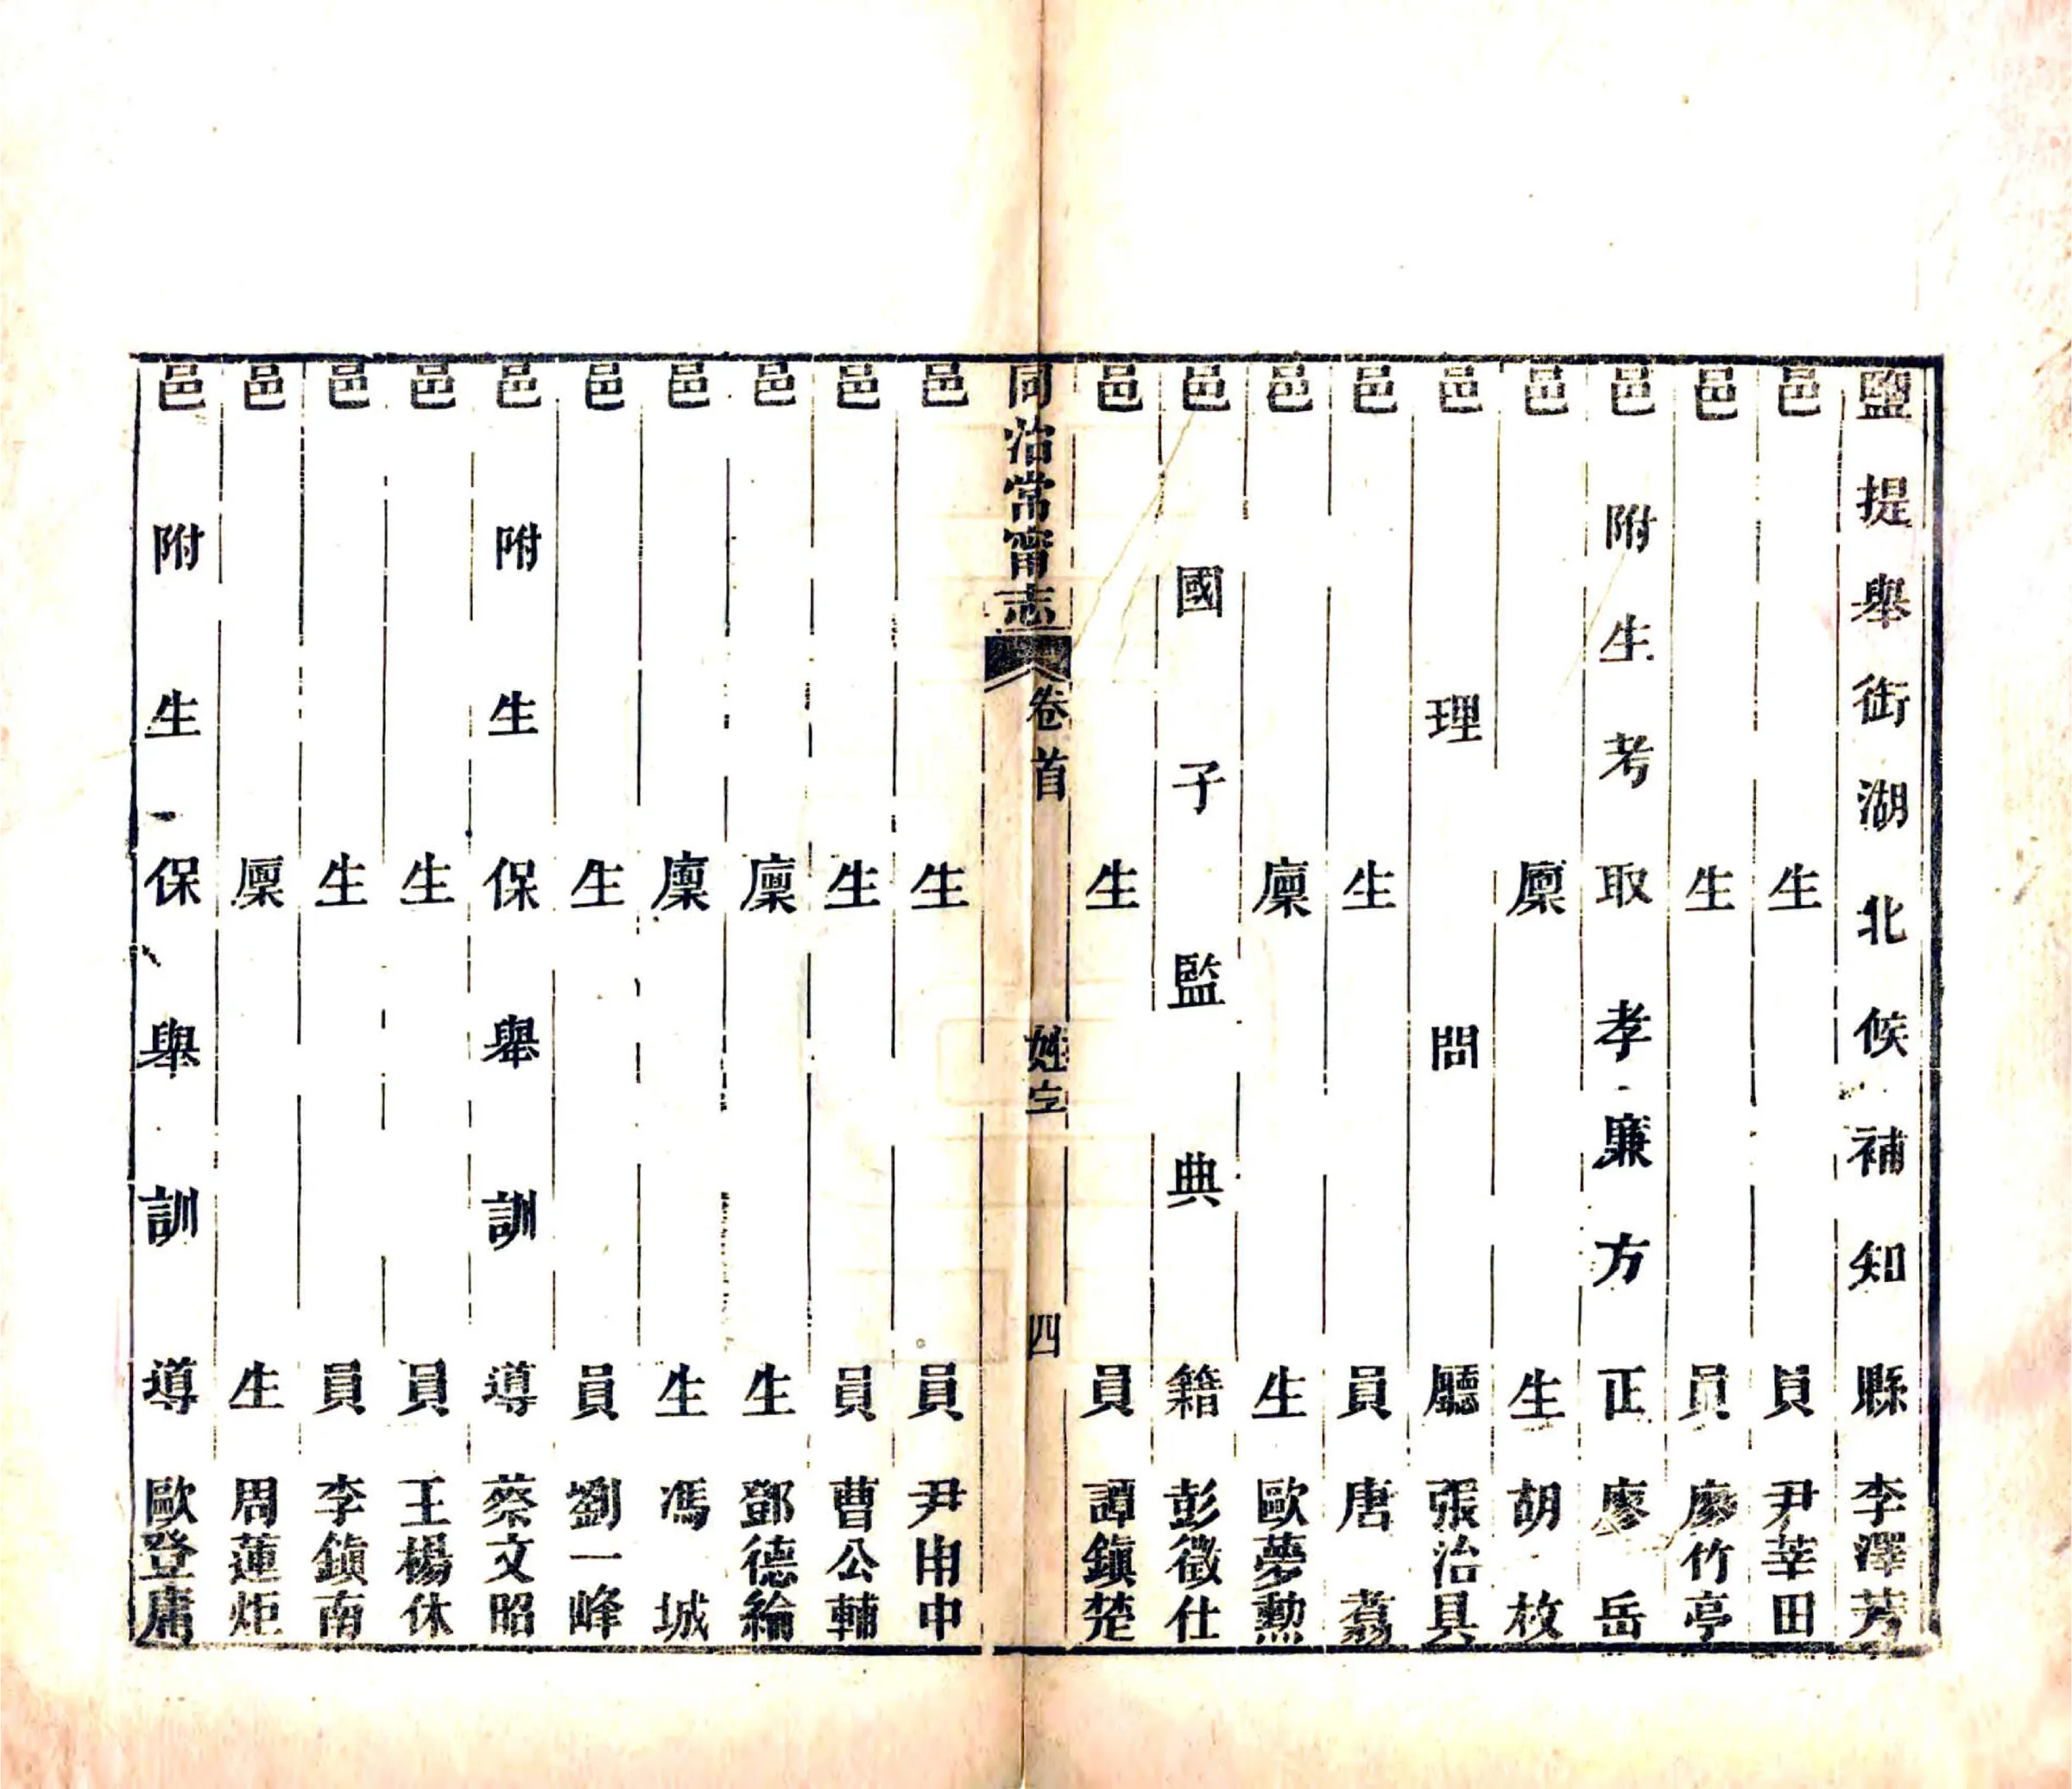 鹽提舉銜湖北候補知縣李澤芳
邑生員尹莘田
邑生員廖竹亭
邑附生考取孝廉方正廖岳
邑廩生胡枚
邑理問廳張治具
邑生員唐翥
邑廩生歐夢勲
邑國子監典籍彭徵仕
邑生員譚鎭楚
同治常甯志 卷首 姓 四
邑生員尹甶中
邑生員曹公輔
邑廩生鄧德綸
邑廩生馮城
邑生員劉一峰
邑附生保舉訓導蔡文昭
邑生員王楊休
邑生員李鎭南
邑廩生周蓮炬
邑附生保舉訓導歐登庸